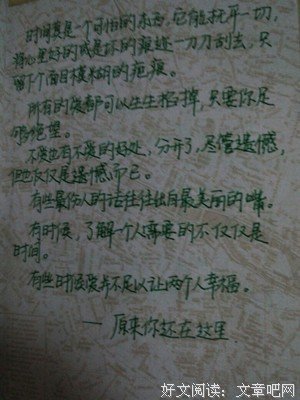 时间真是一个可怕的东西,它能抚平一切,
将心里好的或是坏的痕迹一刀刀刮去,只
留下个面目模糊的疤痕。
所有的傻都可以生生掐掉,只要你足
够绝望。
不爱也有不爱的好处,分开了,尽管遗憾,
但也仅仅是遗憾而已。
有些最伤人的话往往出自最美丽的嘴。
有时候,了解一个人需要的不仅仅是
时间。
有些时候爱并不足以让两个人幸福。
——原来你还在这里
好文阅读:文章吧网